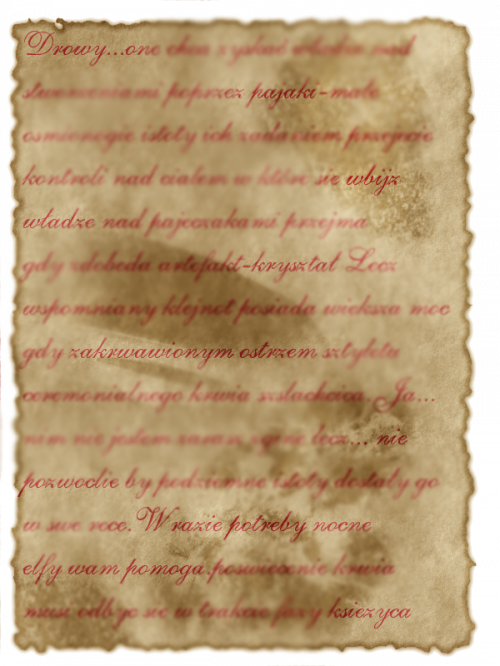 Drowy...one chca zyskać władze nad
stworzeniami poprzez pajaki-małe
osmionogie istoty ich zadaniem przejęcie
kontroli nad ciałem w które sie wbijz
władze nad pajeczakami przejma
gdy zdobeda artefakt-kryształ Lecz
wspomniany klejnot posiada wieksza moc
gdy zakrwawionym ostrzem sztyletu
ceremonialnego krwia Ja...
nem nie jestem zaraz zgine lecz... nie
pozwoclie by podziemne istoty dostały go
w swe rece. W razie potreby nocne
elfy wam pomoga.poswiecenie krwia
musi odbyc sie w trakcie fazy ksiezyca